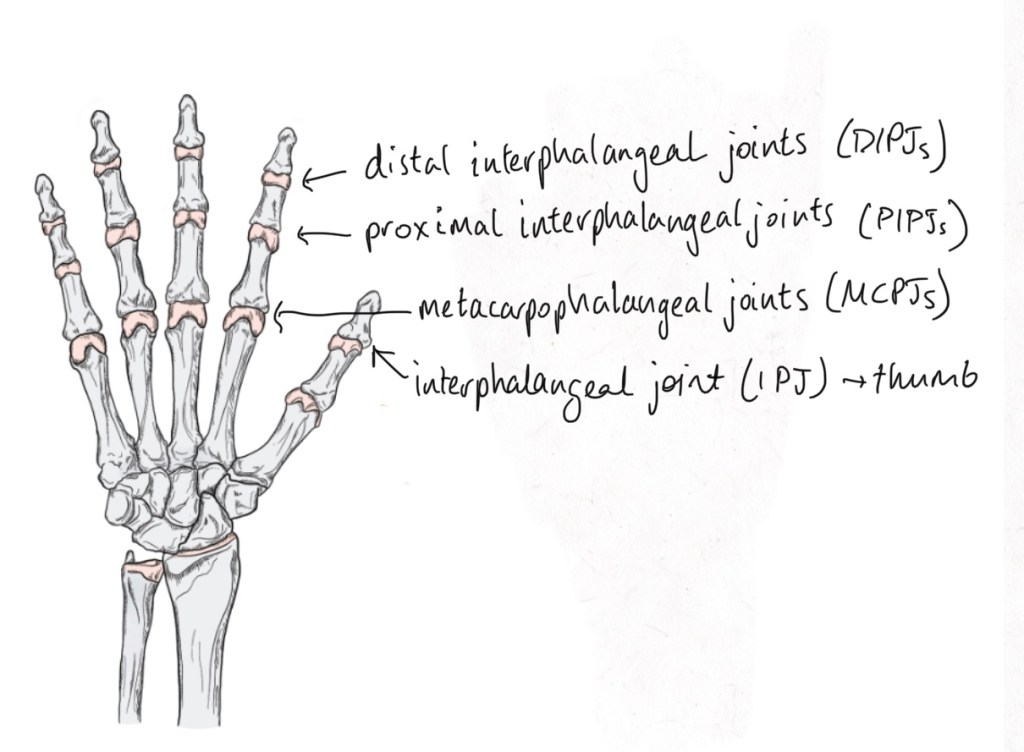 distal interphalangeal joints (DIPJs)
proximal interphalangeal joints (PIPJs)
metacarpophalangeal joints (MCPJs)
interphalangeal joint (IPJ) → thumb